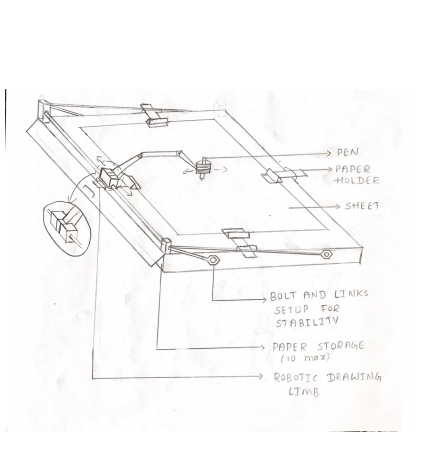 PEN
PAPER
HOLDER
SHEET
BOLT AND LINKS
SETUP FOR
STABILITY
PAPER STORAGE
(10 max)
ROBOTIC DRAWING
LIMB